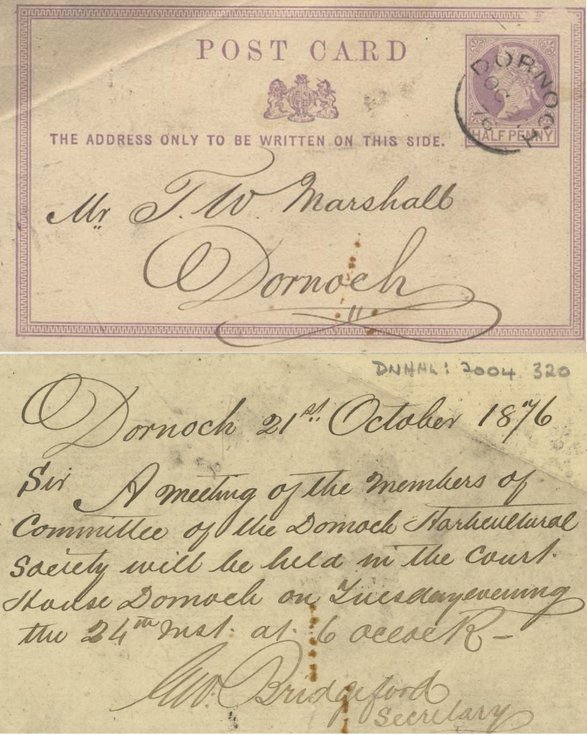 POST CARD
THE ADDRESS ONLY TO BE WRITTEN ON THIS SIDE.
DORNOCH
OC
HALF PENNY
Mr T. W Marshall
Dornoch
DNHHL: 2004 320
Dornoch 21st October 1876
Sir A meeting of the members of
Committee of the Dornoch Horticultural
Society will be held in the Court
House Dornoch on Tuesday evening
the 24th inst. at 6 oclock –
Geo. Bridgeford
Secretary